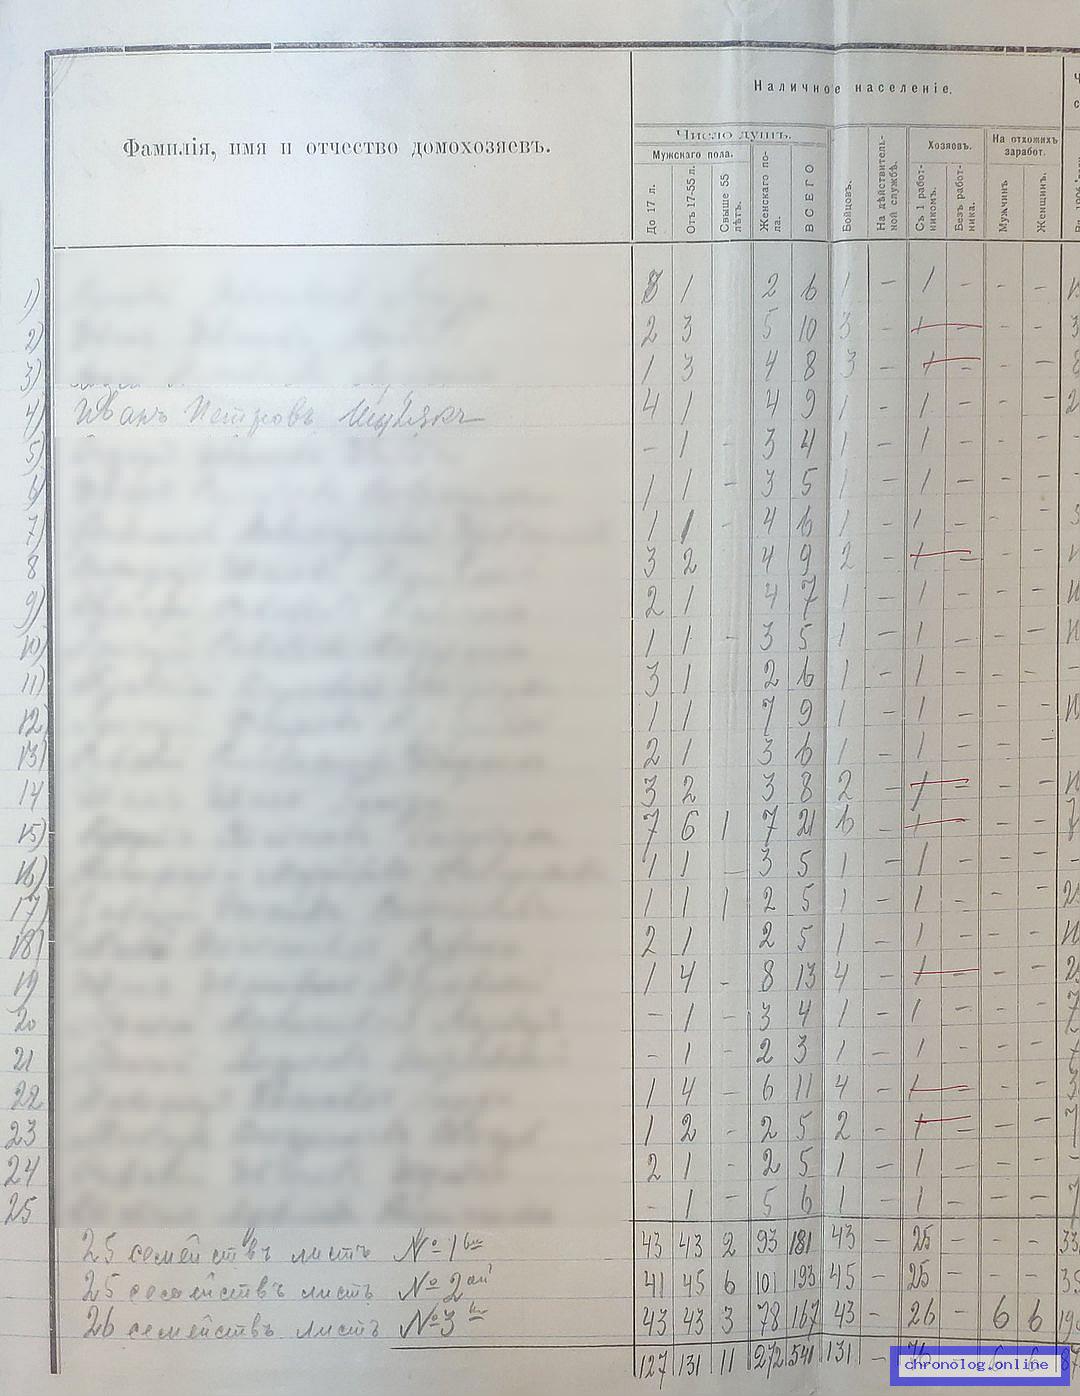 Фамилія, имя и отчество домохозяевъ.
Наличное населеніе.
Число душъ.
Мужскаго пола.
До 17 л.
Отъ 17-55 л.
Свыше 55 лѣтъ.
Женскаго пола.
ВСЕГО
Бойцовъ.
На дѣйствительной службѣ.
Хозяевъ.
Съ 1 работникомъ.
Безъ работника.
На отхожихъ заработ.
Мужчинъ
Женщинъ.
1) 3 1 2 6 1 — 1 — — —
2) 2 3 5 10 3 — 1 — — — 3
3) 1 3 4 8 3 1 — — — 8
4) Иванъ Петровъ 4 1 4 9 1 — 1 — — — 2
5) — 1 — 3 4 1 — 1 — — —
6) 1 1 — 3 5 1 — 1 — — —
7) 1 1 — 4 6 1 — 1 — — — 3
8 3 2 4 9 2 — 1 — — —
9) 2 1 4 7 1 — 1 — — —
10) 1 1 — 3 5 1 — 1 — — —
11) 3 1 2 6 1 — 1 — — —
12) 1 1 7 9 1 — 1 — — —
13) 2 1 3 6 1 — 1 — — —
14 3 2 3 8 2 — 1 — — —
15) 7 6 1 7 21 6 — 1 — — —
16) 1 1 — 3 5 1 — 1 — — —
17) 1 1 1 2 5 1 — 1 — — — 2
18) 2 1 2 5 1 — 1 — — —
19 1 4 — 8 13 4 — 1 — — — 2
20 — 1 — 3 4 1 — 1 — — — 7
21 — 1 — 2 3 1 — 1 — — —
22 1 4 — 6 11 4 — 1 — — — 3
23 1 2 — 2 5 2 — 1 — — — 7
24 2 1 — 2 5 1 — 1 — — —
25 — 1 — 5 6 1 — 1 — — — 7
25 семействъ листъ № 1й 43 43 2 93 181 43 — 25 — — — 33
25 семействъ листъ № 2ой 41 45 6 101 193 45 — 25 — — — 35
26 семействъ листъ № 3й 43 43 3 78 167 43 — 26 — 6 6 19
127 131 11 272 541 131 — 76 — 6 6 87
chronolog.online